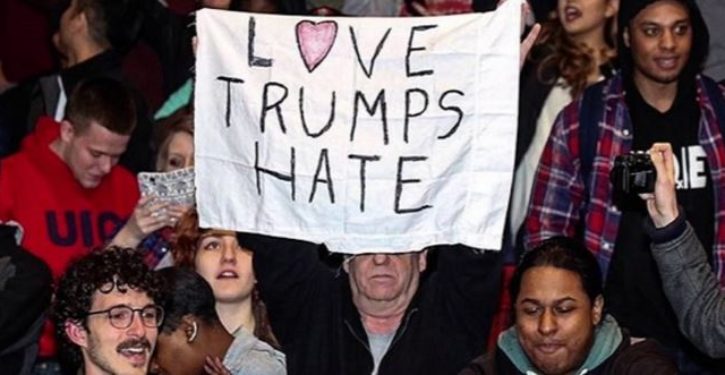 L♥VE
TRUMPS
HATE
UIC